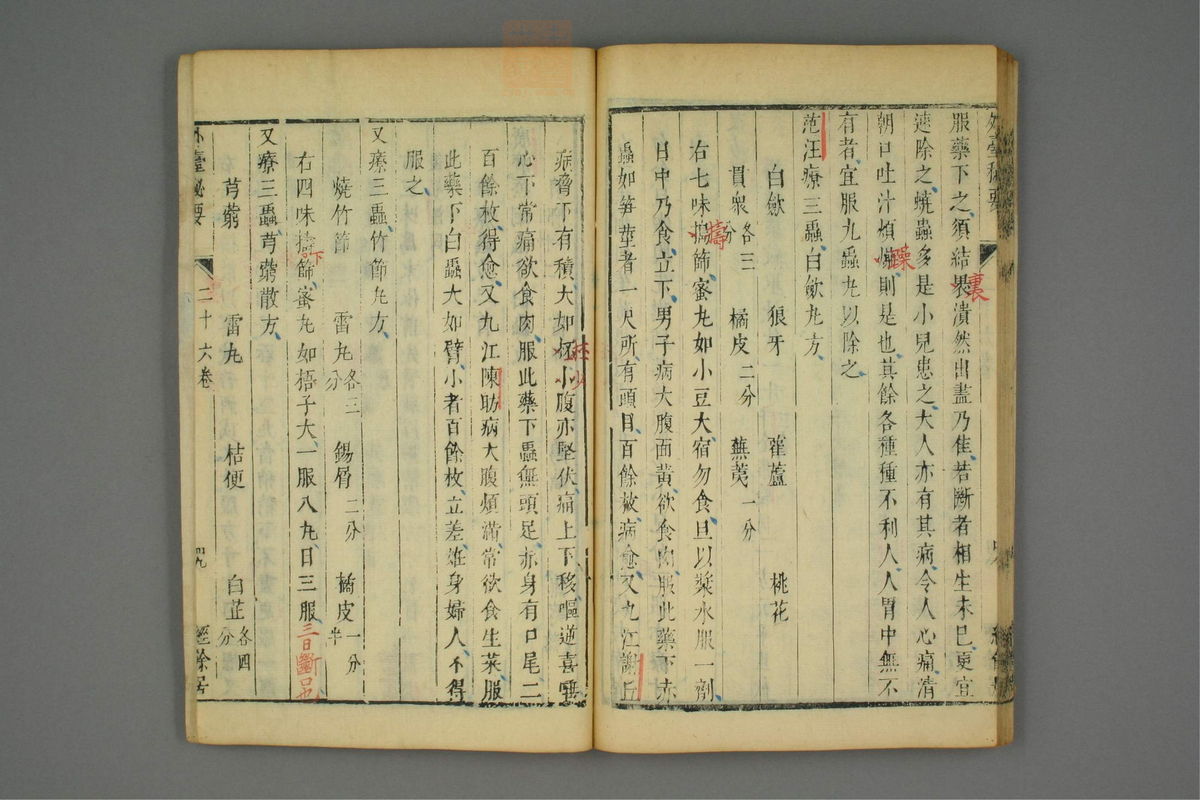 外臺秘要
服藥下之須結裹潰然出盡乃佳若斷者相生未已更宜
裏
速除之蟯蟲多是小兒患之大人亦有其病令人心痛清
朝口吐汁煩燥則是也其餘各種種不利人人胃中無不
躁
有者宜服九蟲丸以除之
范汪療三蟲白歛丸方
白歛 狼牙 雚蘆 桃花
貫衆各三分 橘皮二分 蕪荑一分
右七味搗篩蜜丸如小豆大宿勿食旦以漿水服一劑
擣
日中乃食立下男子病大腹面黃欲食肉服此藥下赤
蟲如笋莖者一尺所有頭目百餘枚病愈又九江謝丘
病脅下有積大如杯小腹亦堅伏痛上下移嘔逆喜唾
少
心下常痛欲食肉服此藥下蟲無頭足赤身有口尾二
百餘枚得愈又九江陳助病大腹煩滿常欲食生菜服
此藥下白蟲大如臂小者百餘枚立差雉身婦人不得
服之
又療三蟲竹節丸方
燒竹節 雷丸各三分 錫屑二分 橘皮一分半
右四味擣篩蜜丸如梧子大一服八丸日三服
下
三日斷口也
又療三蟲芎藭散方
芎藭 雷丸 桔梗 白芷各四分
外臺秘要 二十六卷 四九 經餘居